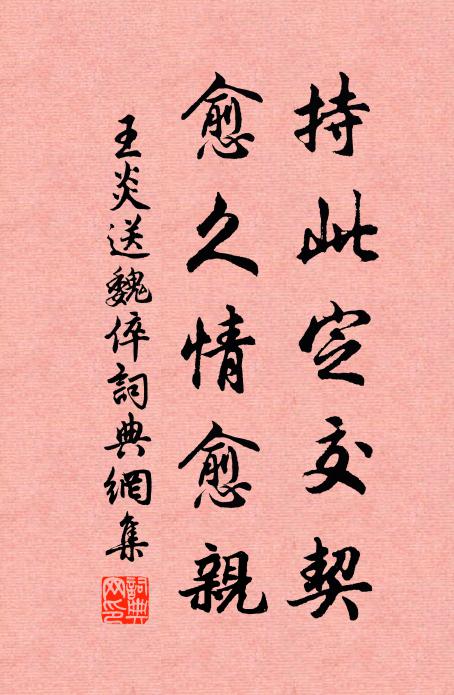 持此定交契
愈久情愈親
王炎送魏倅詞典網集
詞典網印